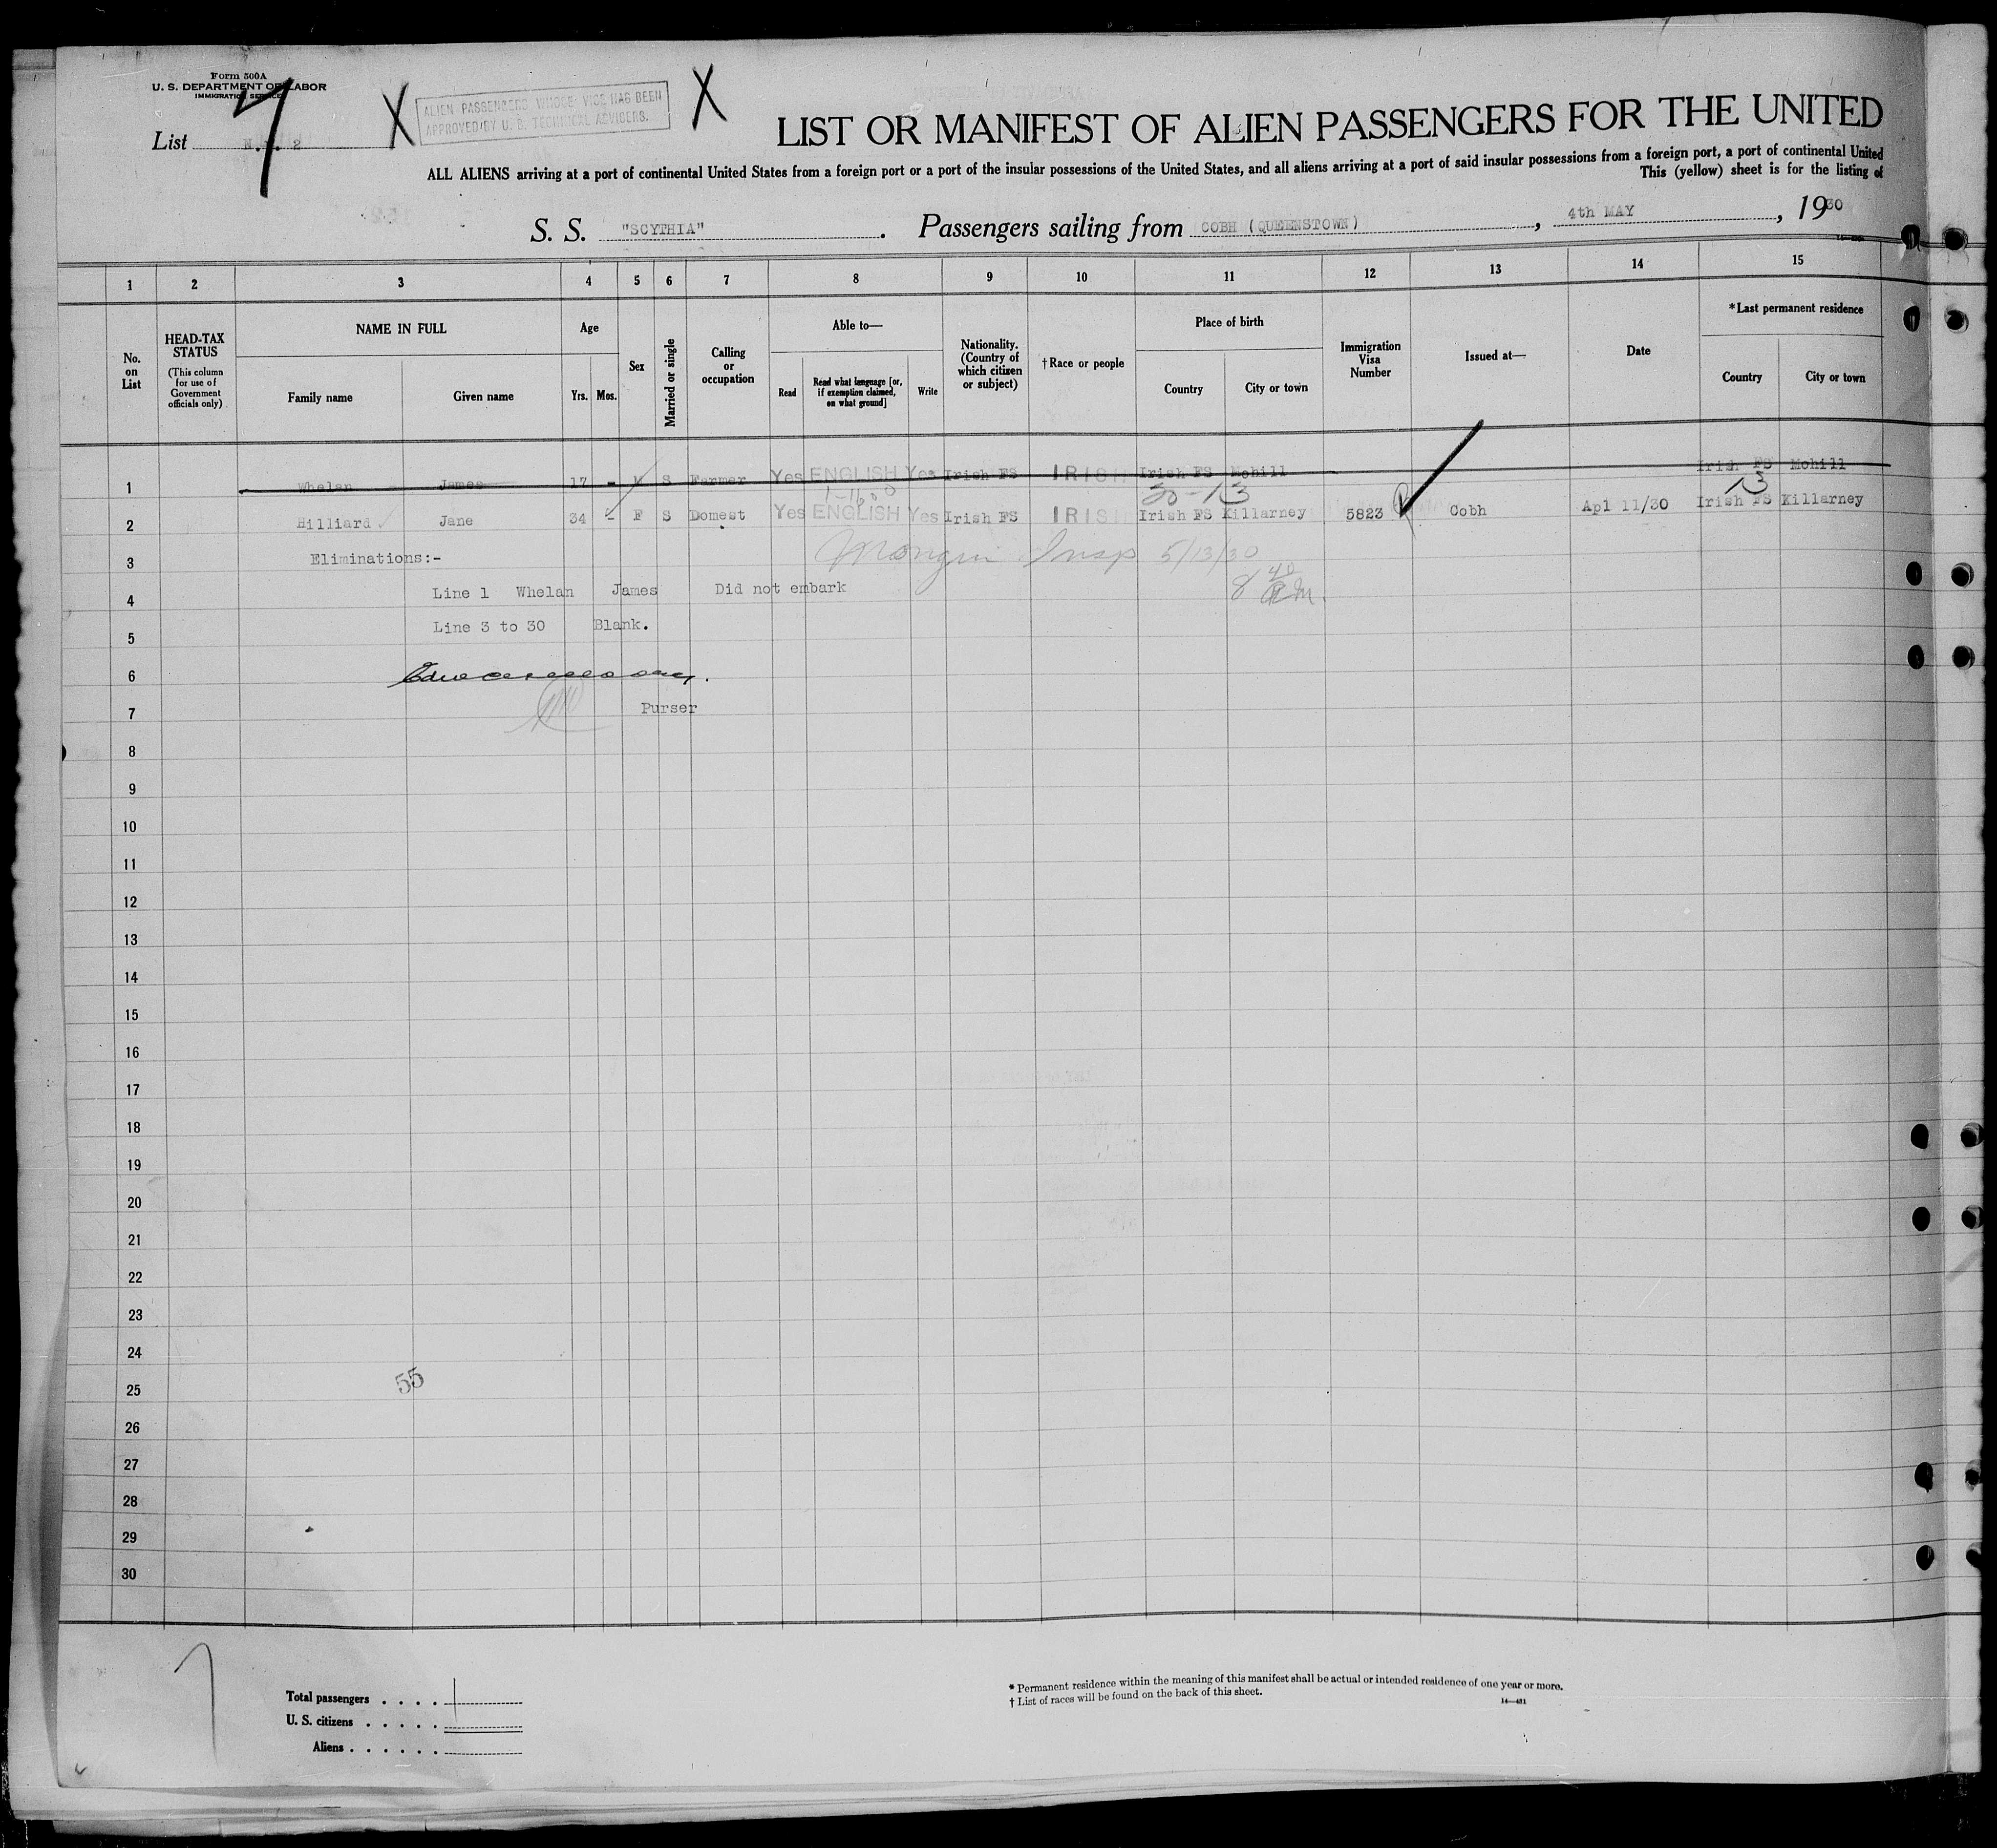 Form 500A
U. S. DEPARTMENT OF LABOR
IMMIGRATION SERVICE
List 7
X
ALIEN PASSENGERS WHOSE VISE HAS BEEN
APPROVED BY U. S. TECHNICAL ADVISERS.
X
LIST OR MANIFEST OF ALIEN PASSENGERS FOR THE UNITED
ALL ALIENS arriving at a port of continental United States from a foreign port or a port of the insular possessions of the United States, and all aliens arriving at a port of said insular possessions from a foreign port, a port of continental United
This (yellow) sheet is for the listing of
S. S. "SCYTHIA". Passengers sailing from COBH (QUEENSTOWN), 4th MAY, 1930
1 2 3 4 5 6 7 8 9 10 11 12 13 14 15
No. on List
HEAD-TAX STATUS
(This column for use of Government officials only)
NAME IN FULL
Family name Given name
Age
Yrs. Mos.
Sex
Married or single
Calling or occupation
Able to—
Read
Read what language [or, if exemption claimed, on what ground]
Write
Nationality. (Country of which citizen or subject)
†Race or people
Place of birth
Country City or town
Immigration Visa Number
Issued at—
Date
*Last permanent residence
Country City or town
1 Whelan James 17 - S Farmer Yes ENGLISH Yes Irish FS IRISH Irish FS Mohill Irish FS Mohill
30-13 13
2 Hilliard Jane 34 - F S Domest Yes ENGLISH Yes Irish FS IRISH Irish FS Killarney 5823 Cobh Apl 11/30 Irish FS Killarney
3 Eliminations:- Insp 5/13/30
4 Line 1 Whelan James Did not embark 8 40
5 Line 3 to 30 Blank.
6
7 Purser
8
9
10
11
12
13
14
15
16
17
18
19
20
21
22
23
24
25 55
26
27
28
29
30
Total passengers . . . . 1
U. S. citizens . . . . .
Aliens . . . . . .
* Permanent residence within the meaning of this manifest shall be actual or intended residence of one year or more.
† List of races will be found on the back of this sheet.
14—431